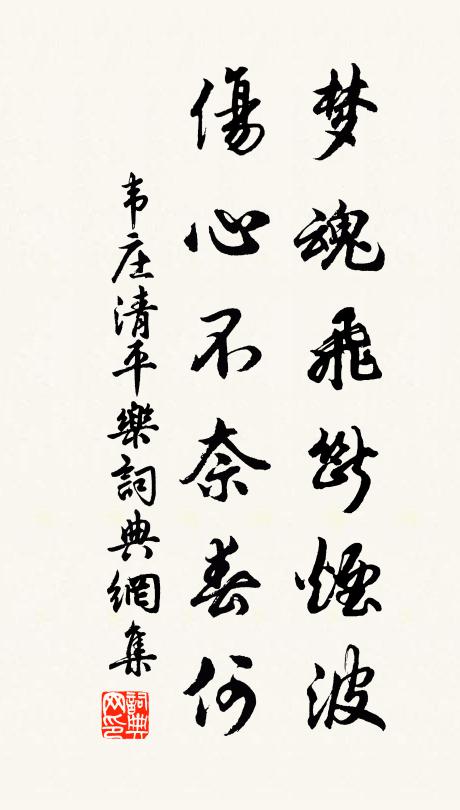 梦魂飛斷煙波
傷心不奈春何
韦庄清平樂詞典網集
詞典網印